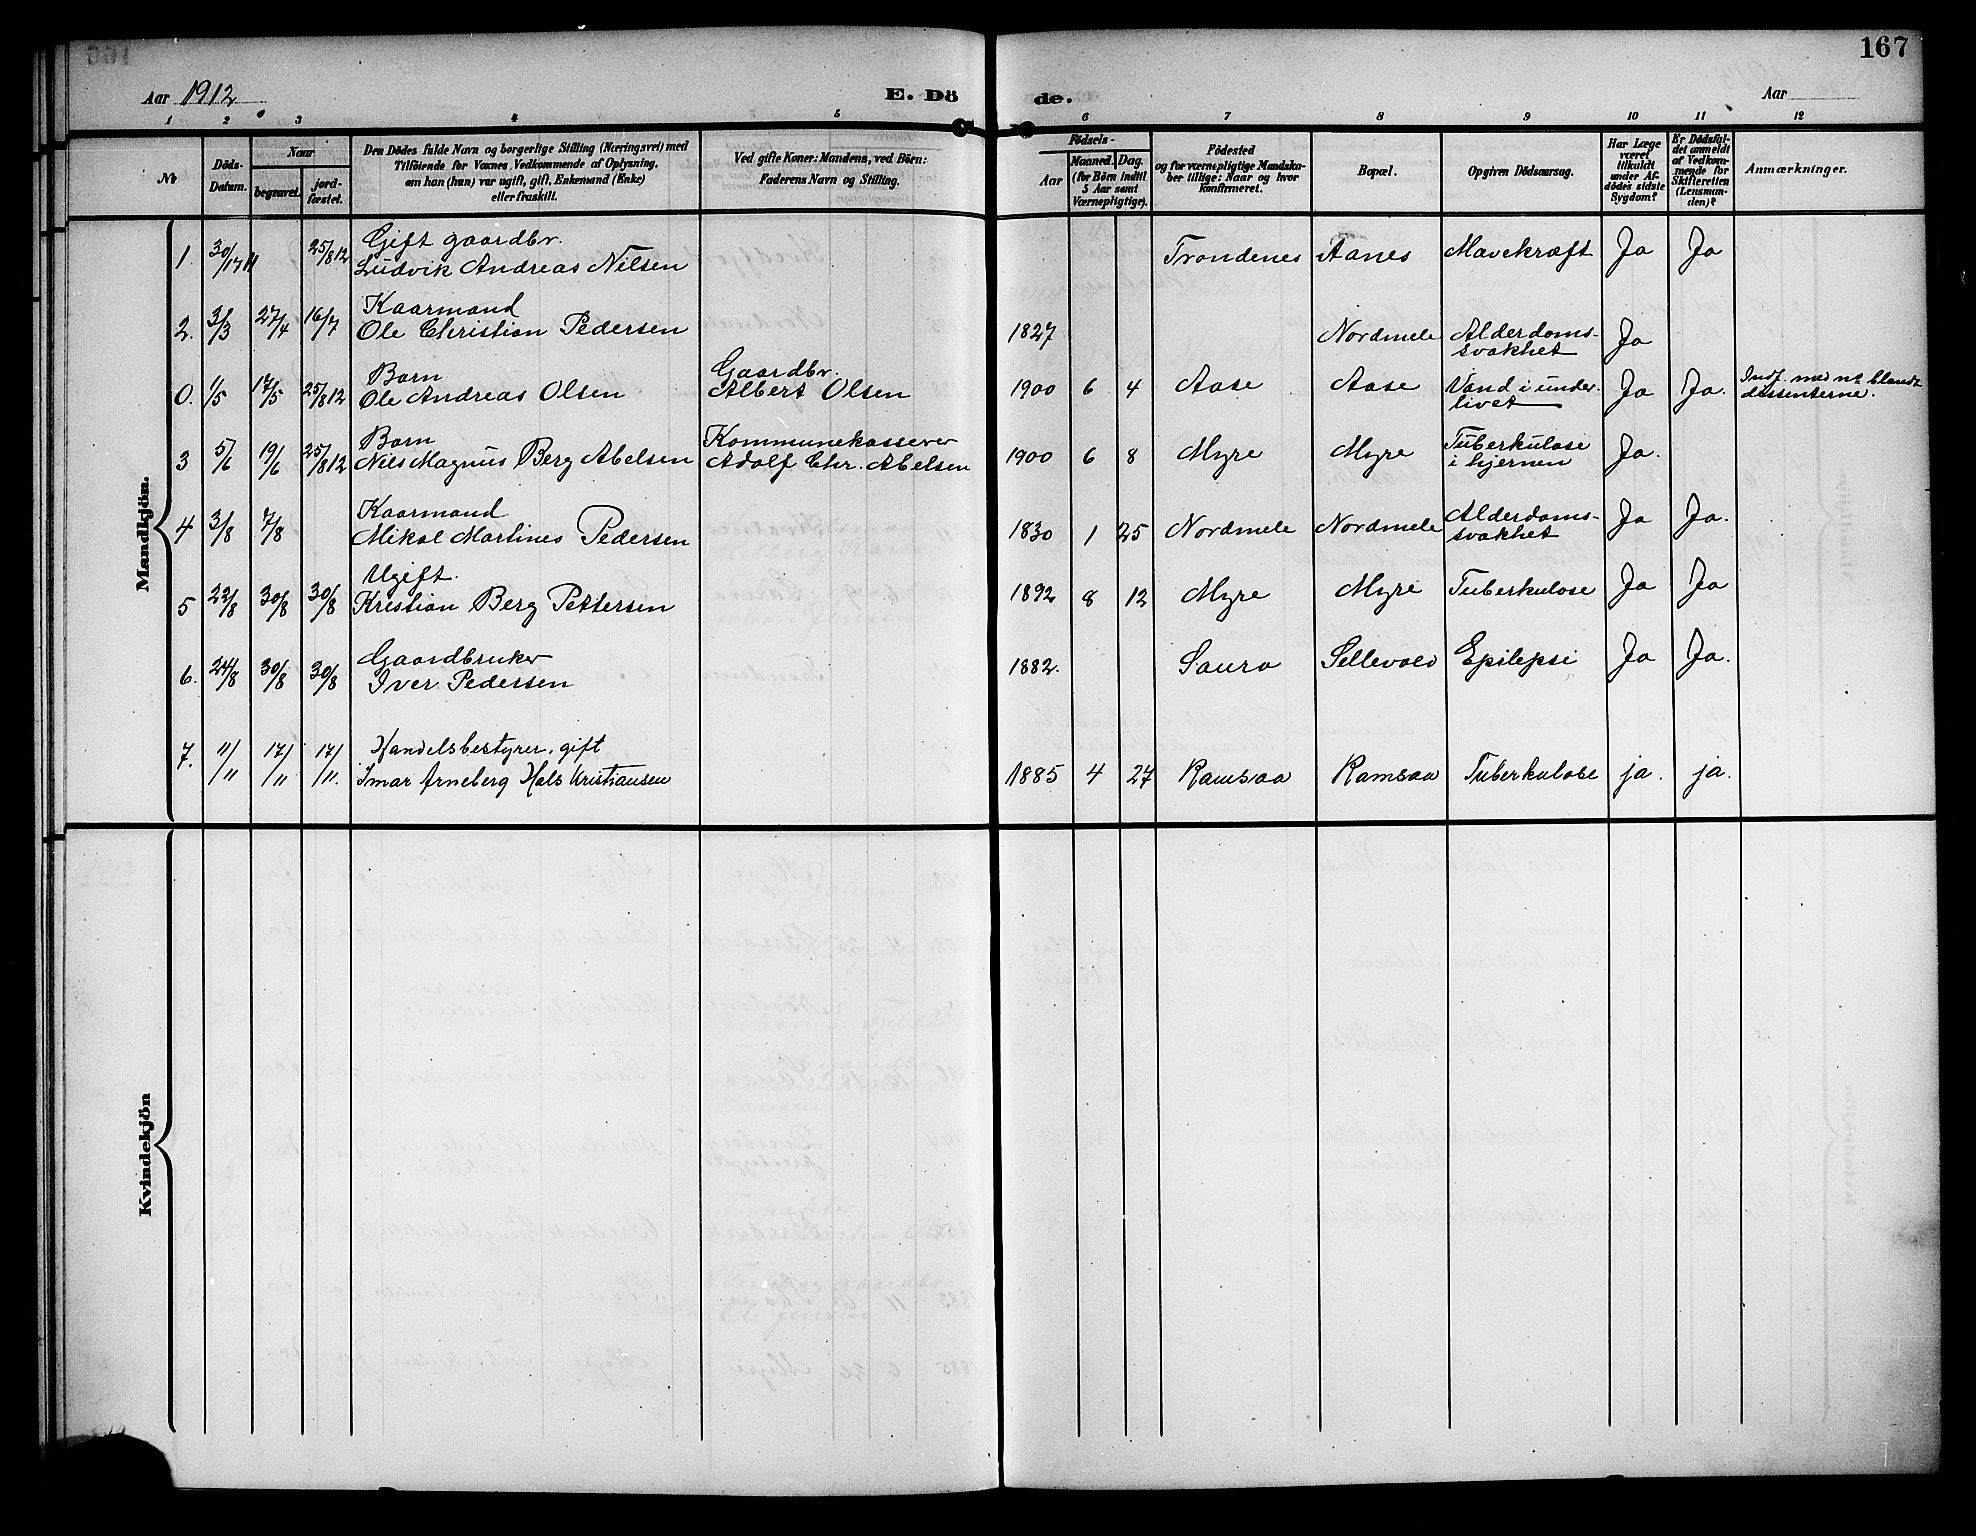 167
Aar 1912
E. Dö
de.
Aar
1 2 3 4 5 6 7 8 9 10 11 12
No
Döds-
Datum.
Naar
begravet.
jord-
fæstet.
Den Dödes fulde Navn og borgerlige Stilling (Næringsvei) med
Tilföiende for Voxnes Vedkommende af Oplysning,
om han (hun) var ugift, gift, Enkemand (Enke)
eller fraskilt.
Ved gifte Koner: Mandens, ved Börn:
Faderens Navn og Stilling.
Födsels-
Aar
Maaned. Dag.
(for Börn indtil
5 Aar samt
Værnepligtige).
Födested
og for værnepligtige Mandska-
ber tillige: Naar og hvor
konfirmeret.
Bopæl.
Opgiven Dödsaarsag.
Har Læge
været
tilkaldt
under Af-
dödes sidste
Sygdom?
Er Dödsfal-
det anmeldt
af Vedkom-
mende for
Skifteretten
(Lensman-
den)?
Anmærkninger.
Mandkjön.
Gift gaardbr.
1 30/1 25/8 12 Ludvik Andreas Nilsen Trondenes Aanes Mavekræft Ja Ja
Kaarmand
2. 31/3 27/4 16/7 Ole Christian Pedersen 1827 Nordmele Alderdoms-
svakhet Ja
Barn Gaardbr.
0. 1/5 17/5 25/8 12 Ole Andreas Olsen Albert Olsen 1900 6 4 Aase Aase Vand i under-
livet Ja Ja. Indf. med no blandt
dissenterne.
Barn Kommunekasserer
3 5/6 19/6 25/8 12 Nils Magnus Berg Abelsen Adolf Chr. Abelsen 1900 6 8 Myre Myre Tuberkulose
i hjernen Ja.
Kaarmand
4 3/8 7/8 Mikal Martines Pedersen 1830 1 25 Nordmele Nordmele Alderdoms-
svakhet Ja Ja.
Ugift.
5 22/8 30/8 30/8 Kristian Berg Pettersen 1892 8 12 Myre Myre Tuberkulose Ja Ja
Gaardbruker
6. 24/8 30/8 30/8 Iver Pedersen 1882. Saura Sellevold Epilepsi Ja Ja.
Handelsbestyrer, gift
7. 11/11 17/11 17/11. Imar Arneberg Hals Kristiansen 1885 4 27 Ramsaa Ramsaa Tuberkulose ja. ja.
Kvindekjön